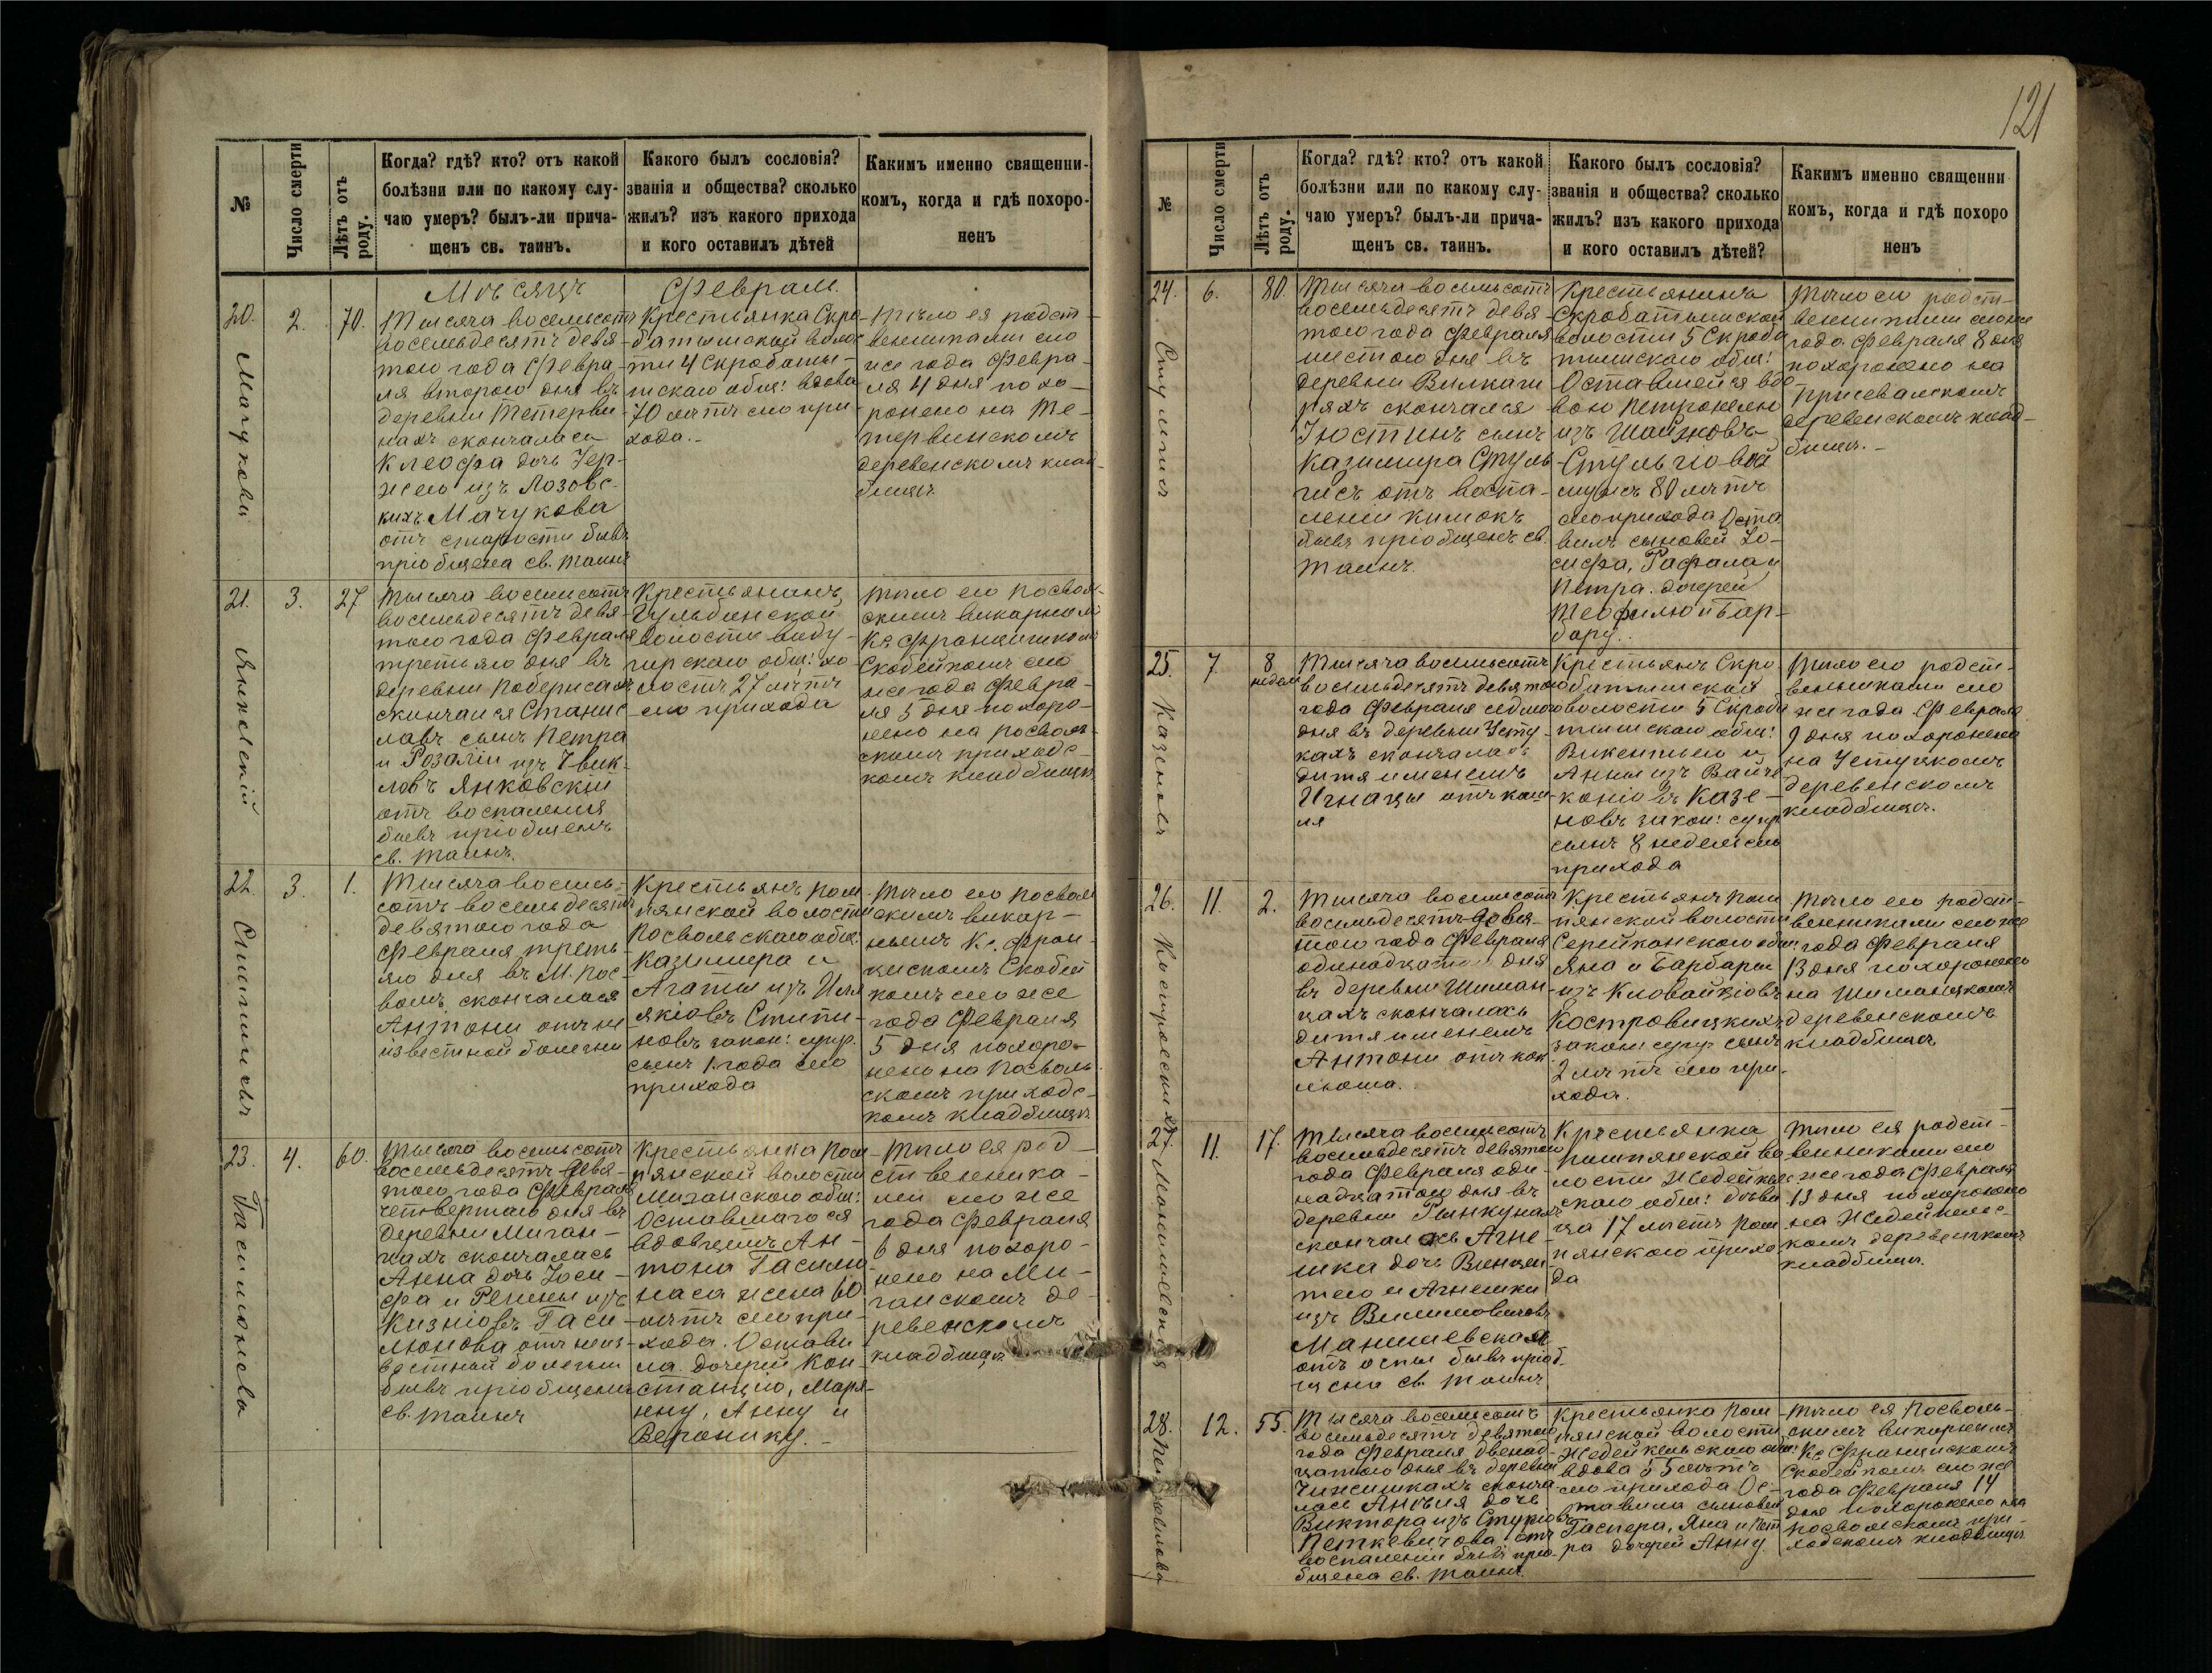 121
№
Число смерти
Лѣтъ отъ роду.
Когда? гдѣ? кто? отъ какой
болѣзни или по какому слу-
чаю умеръ? былъ-ли прича-
щенъ св. таинъ.
Какого былъ сословія?
званія и общества? сколько
жилъ? изъ какого прихода
и кого оставилъ дѣтей
Какимъ именно священни-
комъ, когда и гдѣ похоро-
ненъ
Мѣсяцъ Февраль.
20.
2.
70.
Тысяча восемьсотъ
восемьдесятъ девя-
таго года Февра-
ля втораго дня въ
деревни Тетерви-
нахъ скончалась
Клеофа дочь
изъ Лозовс-
кихъ Мачукова
отъ старости бывъ
пріобщена св. таинъ
Крестьянка Скро-
батишской волос
ти 4 Скробаты-
шскаго общ: вдова
70 лѣтъ сего при-
хода.-
Тѣло ея родст-
венниками сего
же года Февра-
ля 4 дня похо-
ронено на Те-
тервинскомъ
деревенскомъ клад-
бищѣ
21.
3.
27
Янковскій
Тысяча восемьсотъ
восемьдесятъ девя-
таго года Февраля
третьяго дня въ
деревни
скончался Станис-
лавъ сынъ Петра
и Розаліи изъ
Янковскій
отъ воспаленія
бывъ пріобщенъ
св. таинъ.
Крестьянинъ
волости
общ: хо-
лостъ 27 лѣтъ
сего прихода
Тѣло его Посволь-
скимъ викарнымъ
Кс Францишкомъ
Скобейкомъ сего
же года Февра-
ля 5 дня похоро-
нено на Посволь-
скомъ приходс-
комъ кладбищѣ
22.
3.
1.
Тысяча восемь-
сотъ восемьдесятъ
девятаго года
Февраля треть-
яго дня въ М. Пос-
волѣ скончался
Антони отъ не
извѣстной болезни
Крестьянъ Пом
пянской волости
Посвольскаго общ:
Казимира и
Агаты изъ
новъ закон: супр.
сынъ 1 года сего
прихода
Тѣло его Посволь
скимъ викар-
нымъ Кс. Фран-
цискомъ Скобей
комъ сего же
года Февраля
5 дня похоро-
нено на Посволь-
скомъ приходс-
комъ кладбищѣ
23.
4.
60.
Тысяча восемьсотъ
восемьдесятъ девя-
таго года Февраля
четвертаго дня въ
деревни Миган-
цахъ скончалась
Анна дочь Іоси-
фа и Регины изъ
Гаси-
люнова отъ неиз-
вестной болезни
бывъ пріобщена
св. таинъ
Крестьянка Пом
пянской волости
Миганскаго общ:
Оставшагося
вдовцемъ Ан-
тона Гасилю
наса жена 60
лѣтъ сего при-
хода. Остави
ла дочерей Кон-
станцію, Маріа-
нну, Анну и
Веронику.-
Тѣло ея род
ственника-
ми сего же
года Февраля
6 дня похоро-
нено на Ми-
ганскомъ де-
ревенскомъ
кладбищѣ
№
Число смерти
Лѣтъ отъ роду.
Когда? гдѣ? кто? отъ какой
болѣзни или по какому слу-
чаю умеръ? былъ-ли прича-
щенъ св. таинъ.
Какого былъ сословія?
званія и общества? сколько
жилъ? изъ какого прихода
и кого оставилъ дѣтей?
Какимъ именно священни
комъ, когда и гдѣ похоро
ненъ
24.
6.
80.
Тысяча восемьсотъ
восемьдесятъ девя
таго года Февраля
шестого дня въ
деревни
скончался
Іюстинъ сынъ
Казимира Стуль
гисъ отъ воспа-
леніи кишокъ
бывъ пріобщенъ св.
таинъ.
Крестьянинъ
Скробатишской
волости 5 Скроба
тишскаго общ:
Оставшейся вдо
вою Петронели
изъ
Стульгіовой
мужъ 80 лѣтъ
сего прихода Оста
вилъ сыновей Іо-
сифа, Рафала и
Петра. дочерей
Теофилю и Бар-
бару.
Тѣло его родст-
венниками сего же
года Февраля 8 дня
похоронено на
деревенскомъ клад-
бищѣ.-
25.
7.
8
недель
Казеновъ
Тысяча восемьсотъ
восемьдесятъ девятаго
года Февраля седмаго
дня въ деревни Усту-
кахъ скончалось
дитя именемъ
Игнацы отъ каш-
ля
Крестьянъ Скро
батишской
волости 5 Скроба
тишскаго общ:
Викентего и
Анны изъ
Казе-
новъ закон: супр
сынъ 8 недель сего
прихода
Тѣло его родст-
венниками сего
же года Февраля
9 дня похоронено
на Устускомъ
деревенскомъ
кладбищѣ.
26.
11.
2.
Тысяча восемьсотъ
восемьдесятъ девя-
таго года Февраля
одинадцатаго дня
въ деревни Шиман-
цахъ скончалось
дитя именемъ
Антони отъ кок-
люша.
Крестьянъ Пом
пянской волости
общ:
Яна и Барбары
изъ
Костровицкихъ
закон: супр сынъ
2 лѣтъ сего при-
хода.
Тѣло его родст-
венниками сего же
года Февраля
13 дня похоронено
на Шиманскомъ
деревенскомъ
кладбищѣ
27.
11.
17.
Тысяча восемьсотъ
восемьдесятъ девятаго
года Февраля оди-
надцатаго дня въ
деревни
скончалась Агне-
шка дочь Винцен-
тего и Агнешки
изъ
отъ оспы бывъ пріоб-
щена св. таинъ
Крестьянка
Помпянской во
лости
скаго общ: дѣви
ца 17 лѣтъ Пом
пянскаго прихо
да
Тѣло ея родст-
венниками сего
же года Февраля
13 дня похоронено
на
комъ деревенскомъ
кладбищѣ.
28.
12.
55.
Тысяча восемьсотъ
восемьдесятъ девятаго
года Февраля двенад-
цатаго дня въ деревни
сконча
лась дочь
Виктора изъ
Петкевичова отъ
воспаленіи бывъ прио-
бщена св. таинъ.
Крестьянка Пом
пянской волости
общ:
вдова 55 лѣтъ
сего прихода Ос-
тавила сыновей
Гаспера, Яна и Пет
ра дочерей Анну
Тѣло ея Посволь-
скимъ викарнымъ
Кс Францискомъ
Скобейкомъ сего же
года Февраля 14
дня похоронено на
Посвольскомъ при-
ходскомъ кладбищѣ